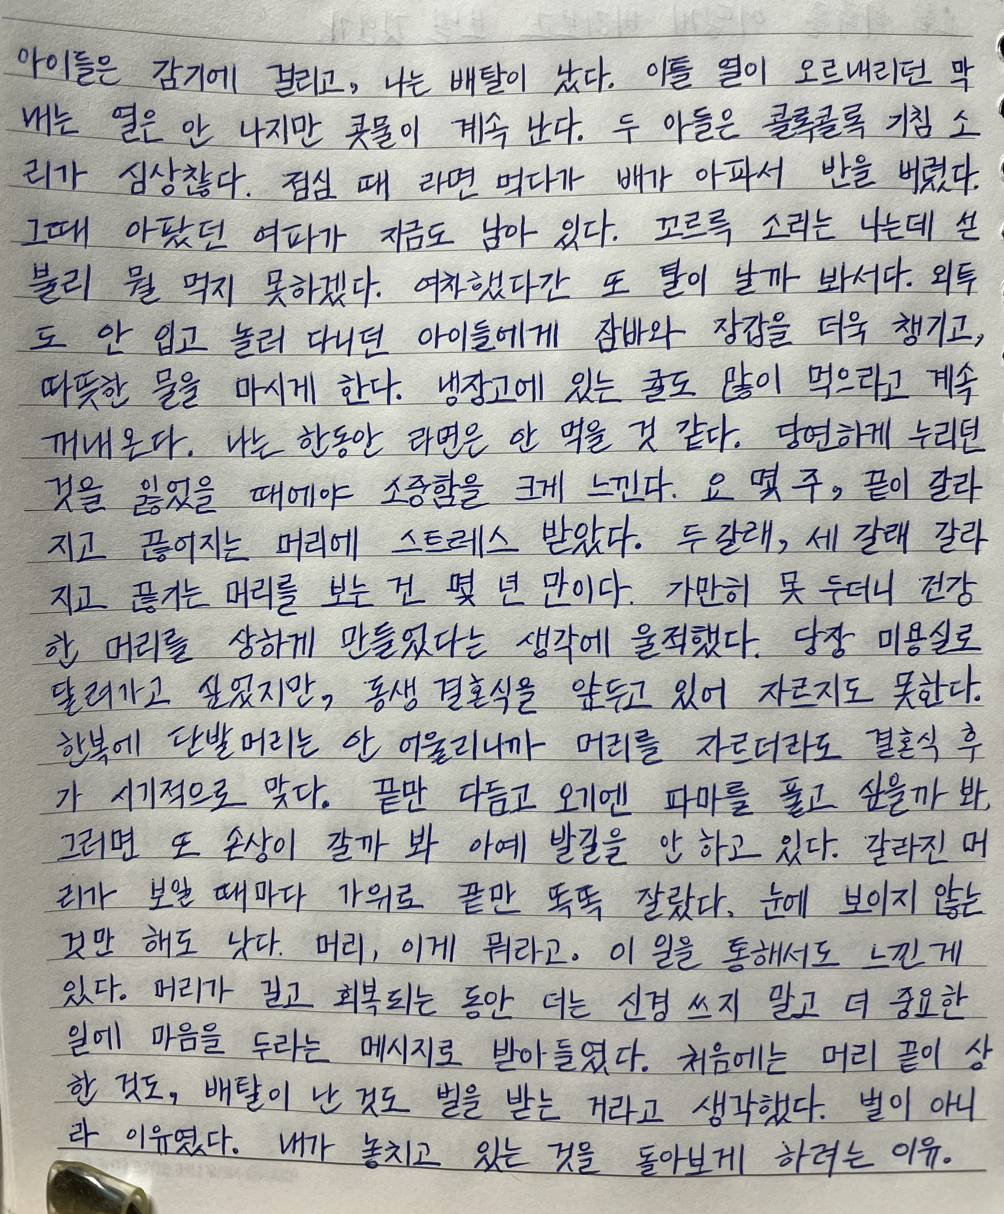 아이들은 감기에 걸리고, 나는 배탈이 났다. 이틀 열이 오르내리던 막
내는 열은 안 나지만 콧물이 계속 난다. 두 아들은 콜록콜록 기침 소
리가 심상찮다. 점심 때 라면 먹다가 배가 아파서 반을 버렸다.
그때 아팠던 여파가 지금도 남아 있다. 꼬르륵 소리는 나는데 섣
불리 뭘 먹지 못하겠다. 여차했다간 또 탈이 날까 봐서다. 외투
도 안 입고 놀러 다니던 아이들에게 잠바와 장갑을 더욱 챙기고,
따뜻한 물을 마시게 한다. 냉장고에 있는 귤도 많이 먹으라고 계속
꺼내온다. 나는 한동안 라면은 안 먹을 것 같다. 당연하게 누리던
것을 잃었을 때에야 소중함을 크게 느낀다. 요 몇 주, 끝이 갈라
지고 끊어지는 머리에 스트레스 받았다. 두 갈래, 세 갈래 갈라
지고 끊기는 머리를 보는 건 몇 년 만이다. 가만히 못 두더니 건강
한 머리를 상하게 만들었다는 생각에 울적했다. 당장 미용실로
달려가고 싶었지만, 동생 결혼식을 앞두고 있어 자르지도 못한다.
한복에 단발머리는 안 어울리니까 머리를 자르더라도 결혼식 후
가 시기적으로 맞다. 끝만 다듬고 오기엔 파마를 풀고 싶을까 봐,
그러면 또 손상이 갈까 봐 아예 발길을 안 하고 있다. 갈라진 머
리가 보일 때마다 가위로 끝만 똑똑 잘랐다. 눈에 보이지 않는
것만 해도 낫다. 머리, 이게 뭐라고. 이 일을 통해서도 느낀 게
있다. 머리가 길고 회복되는 동안 더는 신경 쓰지 말고 더 중요한
일에 마음을 두라는 메시지로 받아들였다. 처음에는 머리 끝이 상
한 것도, 배탈이 난 것도 벌을 받는 거라고 생각했다. 벌이 아니
라 이유였다. 내가 놓치고 있는 것을 돌아보게 하려는 이유.